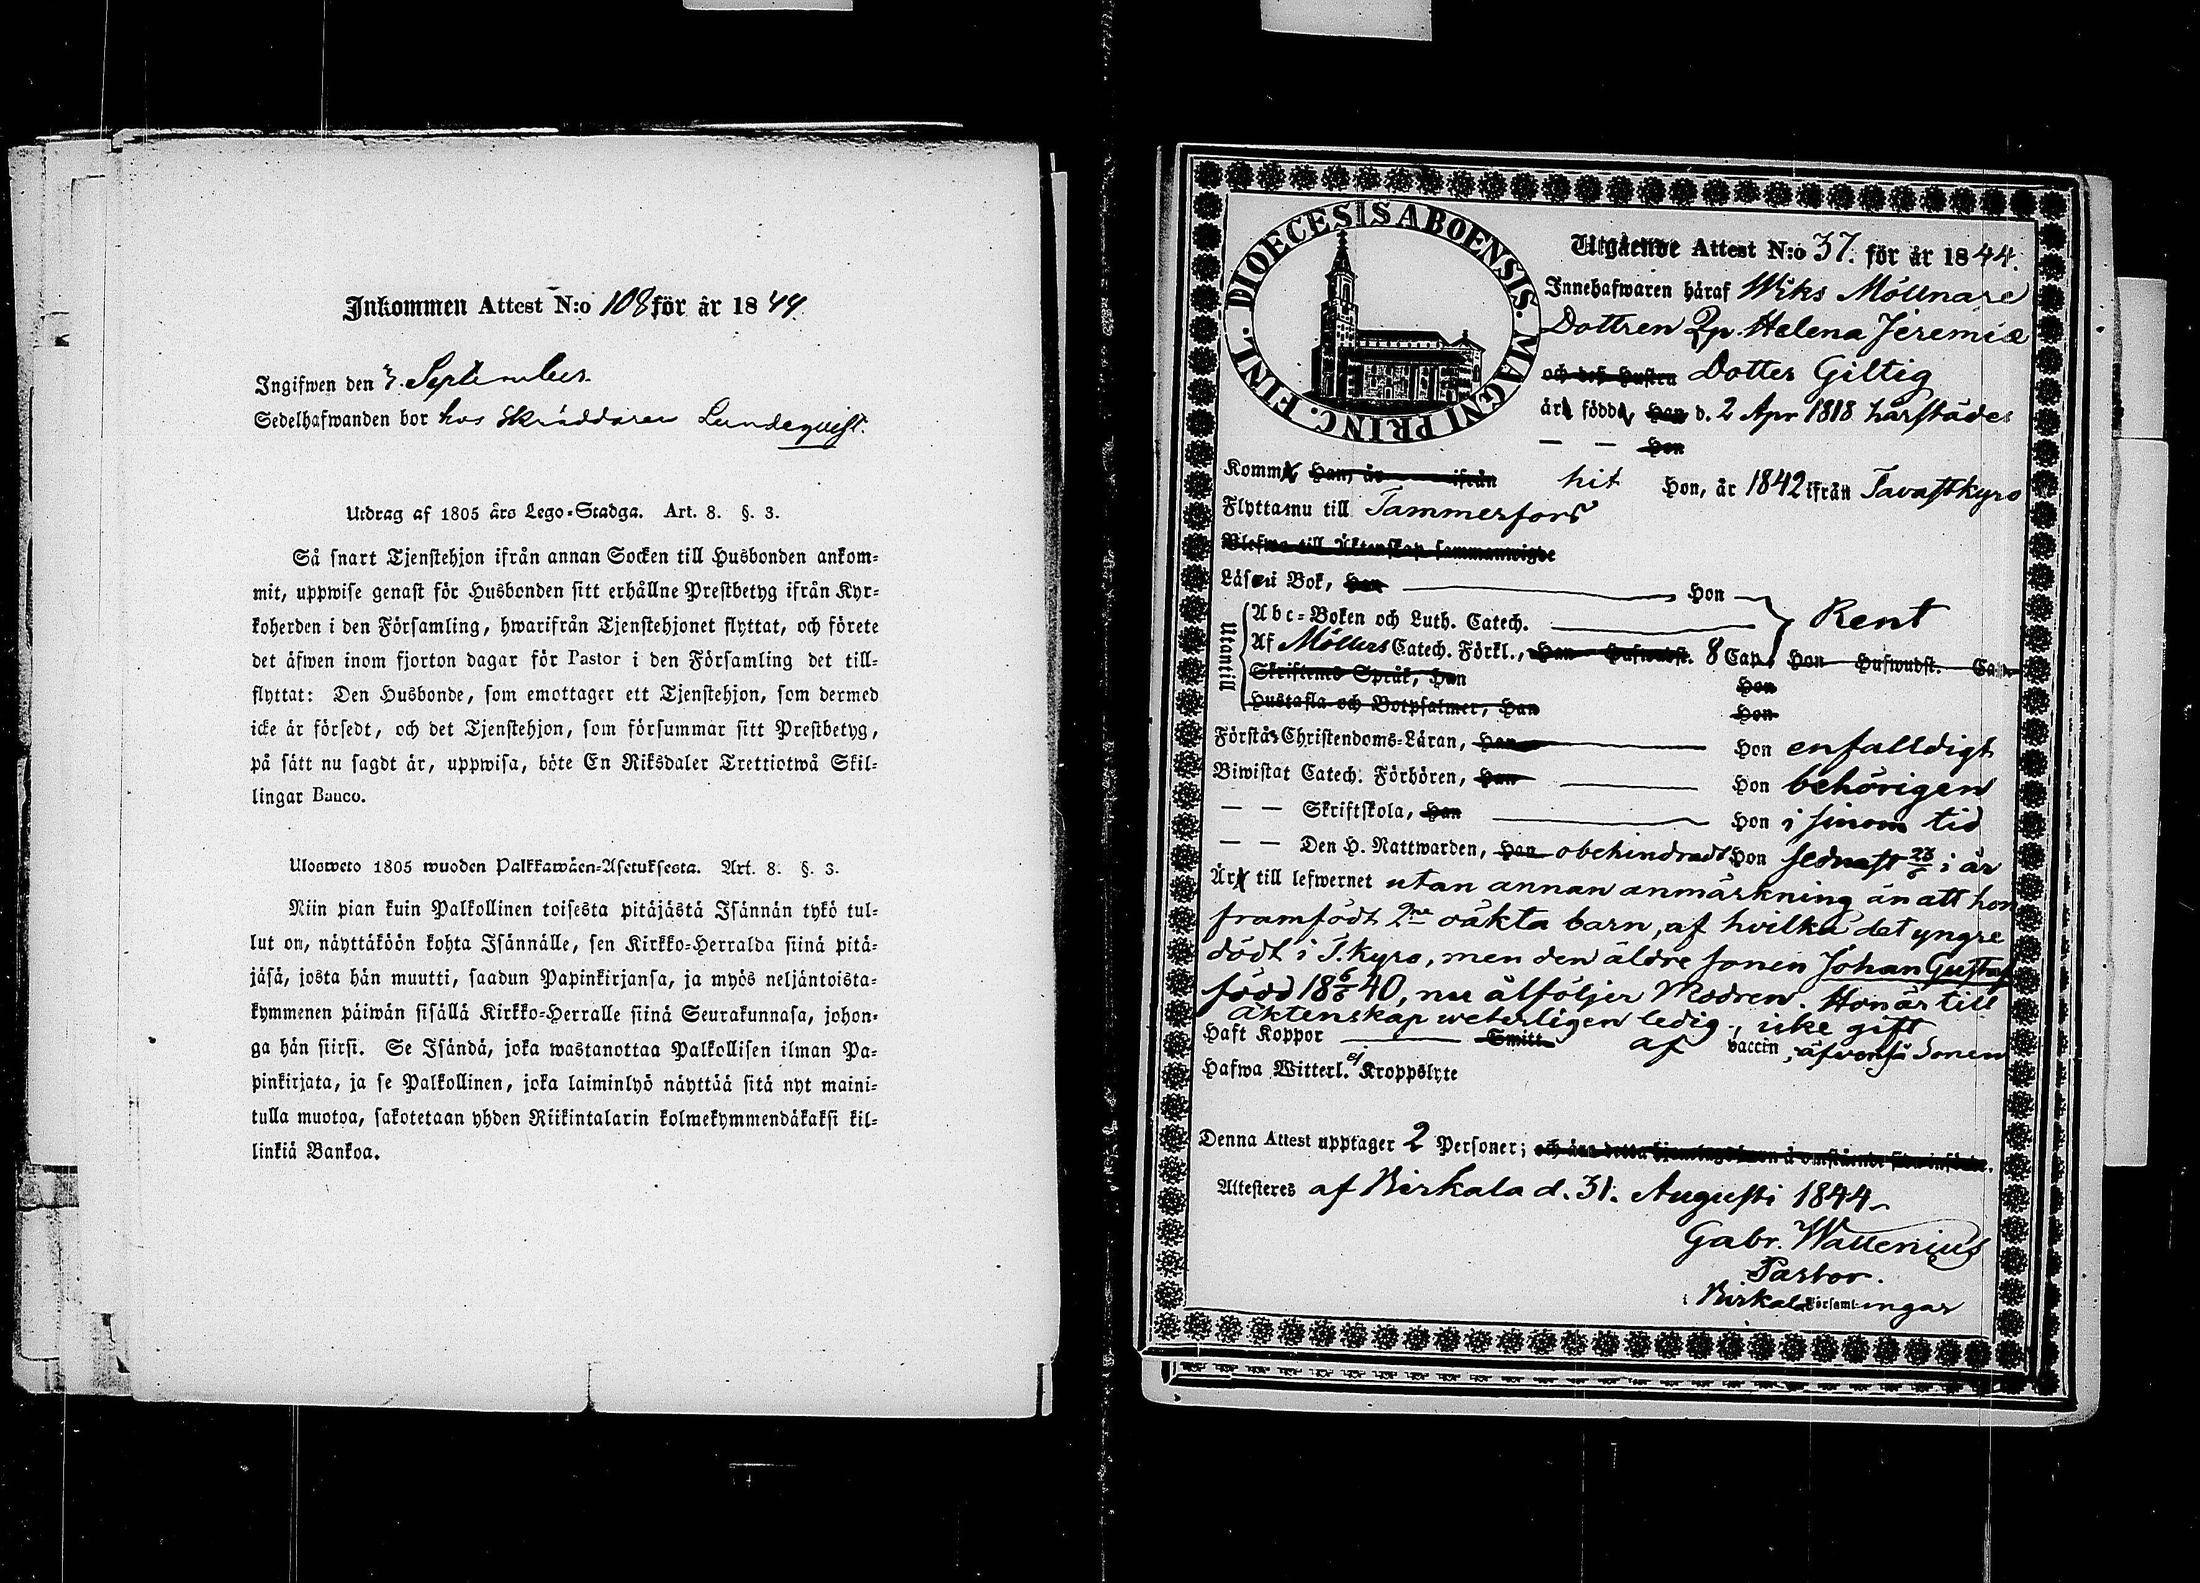 Inkommen Attest N:o 108 för år 1844.
Ingifwen den 3. September
Sedelhafwanden bor hos Skräddaren Lundequist.
Utdrag af 1805 års Lego-Stadga. Art. 8. §. 3.
Så snart Tjenstehjon ifrån annan Socken till Husbonden ankom-
mit, uppwise genast för Husbonden sitt erhållne Prestbetyg ifrån Kyr-
koherden i den Församling, hwarifrån Tjenstehjonet flyttat, och förete
det äfwen inom fjorton dagar för Pastor i den Församling det till-
flyttat: Den Husbonde, som emottager ett Tjenstehjon, som dermed
icke är försedt, och det Tjenstehjon, som försummar sitt Prestbetyg,
på sätt nu sagdt är, uppwisa, böte En Riksdaler Trettiotwå Skil-
lingar Banco.
Ulosweto 1805 wuoden Palkkawäen-Asetuksesta. Art. 8. §. 3.
Niin pian kuin Palkollinen toisesta pitäjästä Isännän tykö tul-
lut on, näyttäköön kohta Isännälle, sen Kirkko-Herralda siinä pitä-
jäsä, josta hän muutti, saadun Papinkirjansa, ja myös neljäntoista-
kymmenen päiwän sisällä Kirkko-Herralle siinä Seurakunnasa, johon-
ga hän siirsi. Se Isändä, joka wastanottaa Palkollisen ilman Pa-
pinkirjata, ja se Palkollinen, joka laiminlyö näyttää sitä nyt maini-
tulla muotoa, sakotetaan yhden Riikintalarin kolmekymmendäkaksi kil-
linkiä Bankoa.
DIOECESIS ABOENSIS. MAGNI PRINC. FINL.
Utgående Attest N:o 37. för år 1844.
Innehafwaren häraf Wiks Möllnare
Dottren Helena Jeremiæ
och deß hustru Dotter Giltig
är född, Han d. 2 Apr 1818 härstädes
— — Hon
Komm Han, år ifrån hit Hon, år 1842 ifrån Tavastkyro
Flytta nu till Tammerfors
Blefwo till Äktenskap sammanwigde
Läser i Bok, Han Hon
Utantill
Abc-Boken och Luth. Catech. Rent
Af Möllers Catech. Förkl., Han Hufwudst. 8 Cap. Hon Hufwudst. Cap.
Skriftenes Språk, Han Hon
Hustafla och Botpsalmer, Han Hon
Förstår Christendoms-Läran, Han Hon enfalldigt
Biwistat Catech. Förhören, Han Hon behörigen
— — Skriftskola, Han Hon i sinom tid
— — Den H. Nattwarden, Han obehindradt Hon sednast i år
Är till lefwernet utan annan anmärkning än att hon
framfödt 2ne oäkta barn, af hvilka det yngre
dödt i T.kyro, men den äldre sonen Johan Gustaf
född 18 6/6 40, nu åtföljer Modren. Hon är till
äktenskap weterligen ledig, icke gift
Haft Koppor Smitt af vaccin, äfvenså Sonen
Hafwa Witterl. ej Kroppslyte
Denna Attest upptager 2 Personer;
Attesteres af Birkala d. 31. Augusti 1844
Gabr. Wallenius
Pastor.
i Birkala Församlingar